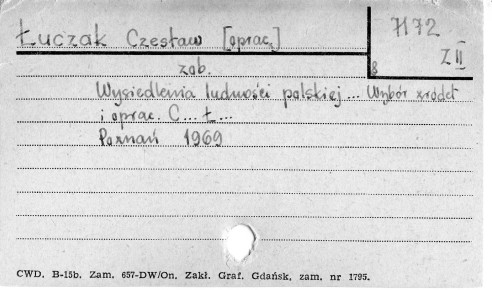 Łuczak Czesław [oprac.]
7172
Z II
8
zob.
Wysiedlenia ludności polskiej... Wybór źródeł
i oprac. C... Ł...
Poznań 1969
CWD. B-15b. Zam. 657-DW/On. Zakł. Graf. Gdańsk, zam. nr 1795.